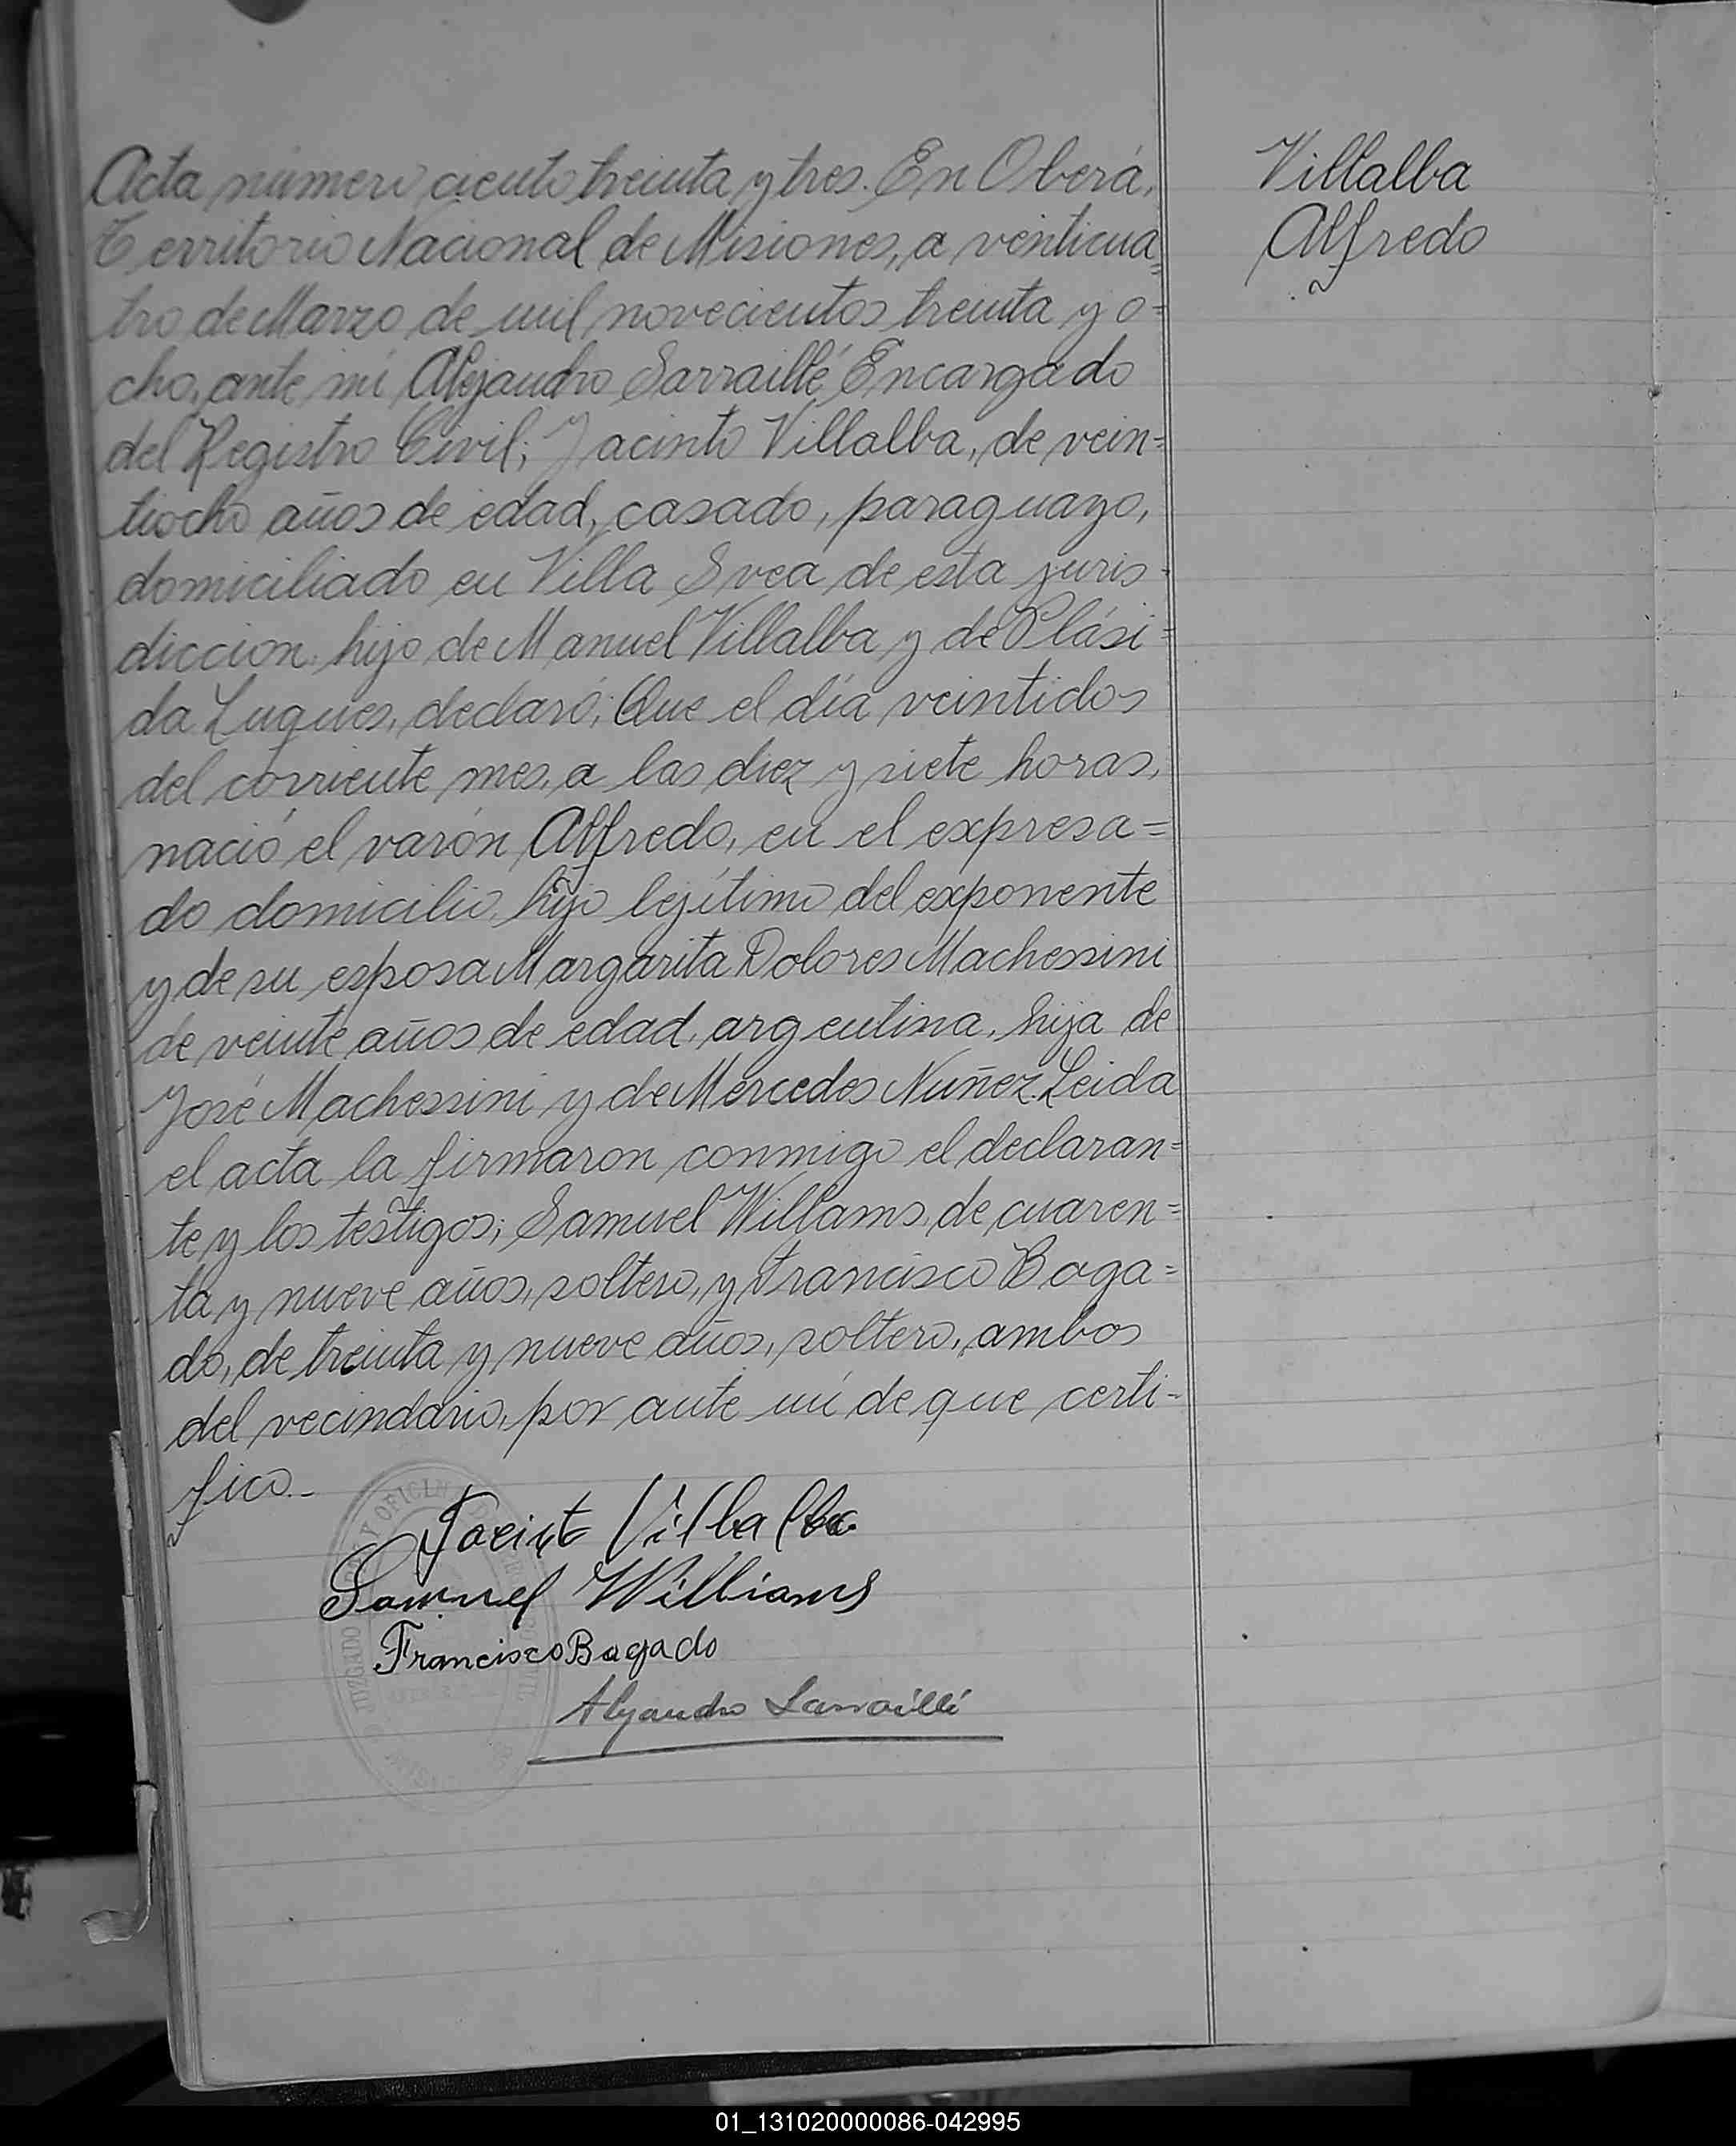 Acta número ciento treinta y tres. En Oberá,
Territorio Nacional de Misiones, a venticua=
tro de Marzo de mil novecientos treinta y o=
cho, ante mí Alejandro Sarraillé, Encargado
del Registro Civil; Jacinto Villalba, de vein=
tiocho años de edad, casado, paraguayo,
domiciliado en Villa Svea de esta juris-
diccion, hijo de Manuel Villalba y de Plási=
da Luques, declaró; Que el día veintidos
del corriente mes, a las diez y siete horas,
nació el varón Alfredo, en el expresa=
do domicilio, hijo lejítimo del exponente
y de su esposa Margarita Dolores Machessini
de veinte años de edad, argentina, hija de
José Machessini y de Mercedes Nuñez. Leida
el acta la firmaron conmigo el declaran=
te y los testigos; Samuel Willams, de cuaren=
ta y nueve años, soltero, y Francisco Boga=
do, de treinta y nueve años, soltero, ambos
del vecindario, por ante mí de que certi-
fico.-
Villalba
Alfredo
Jacinto Villalba
Samuel Williams
Francisco Bogado
Alejandro Sarraillé
JUZGADO Y OFICINA
01_131020000086-042995